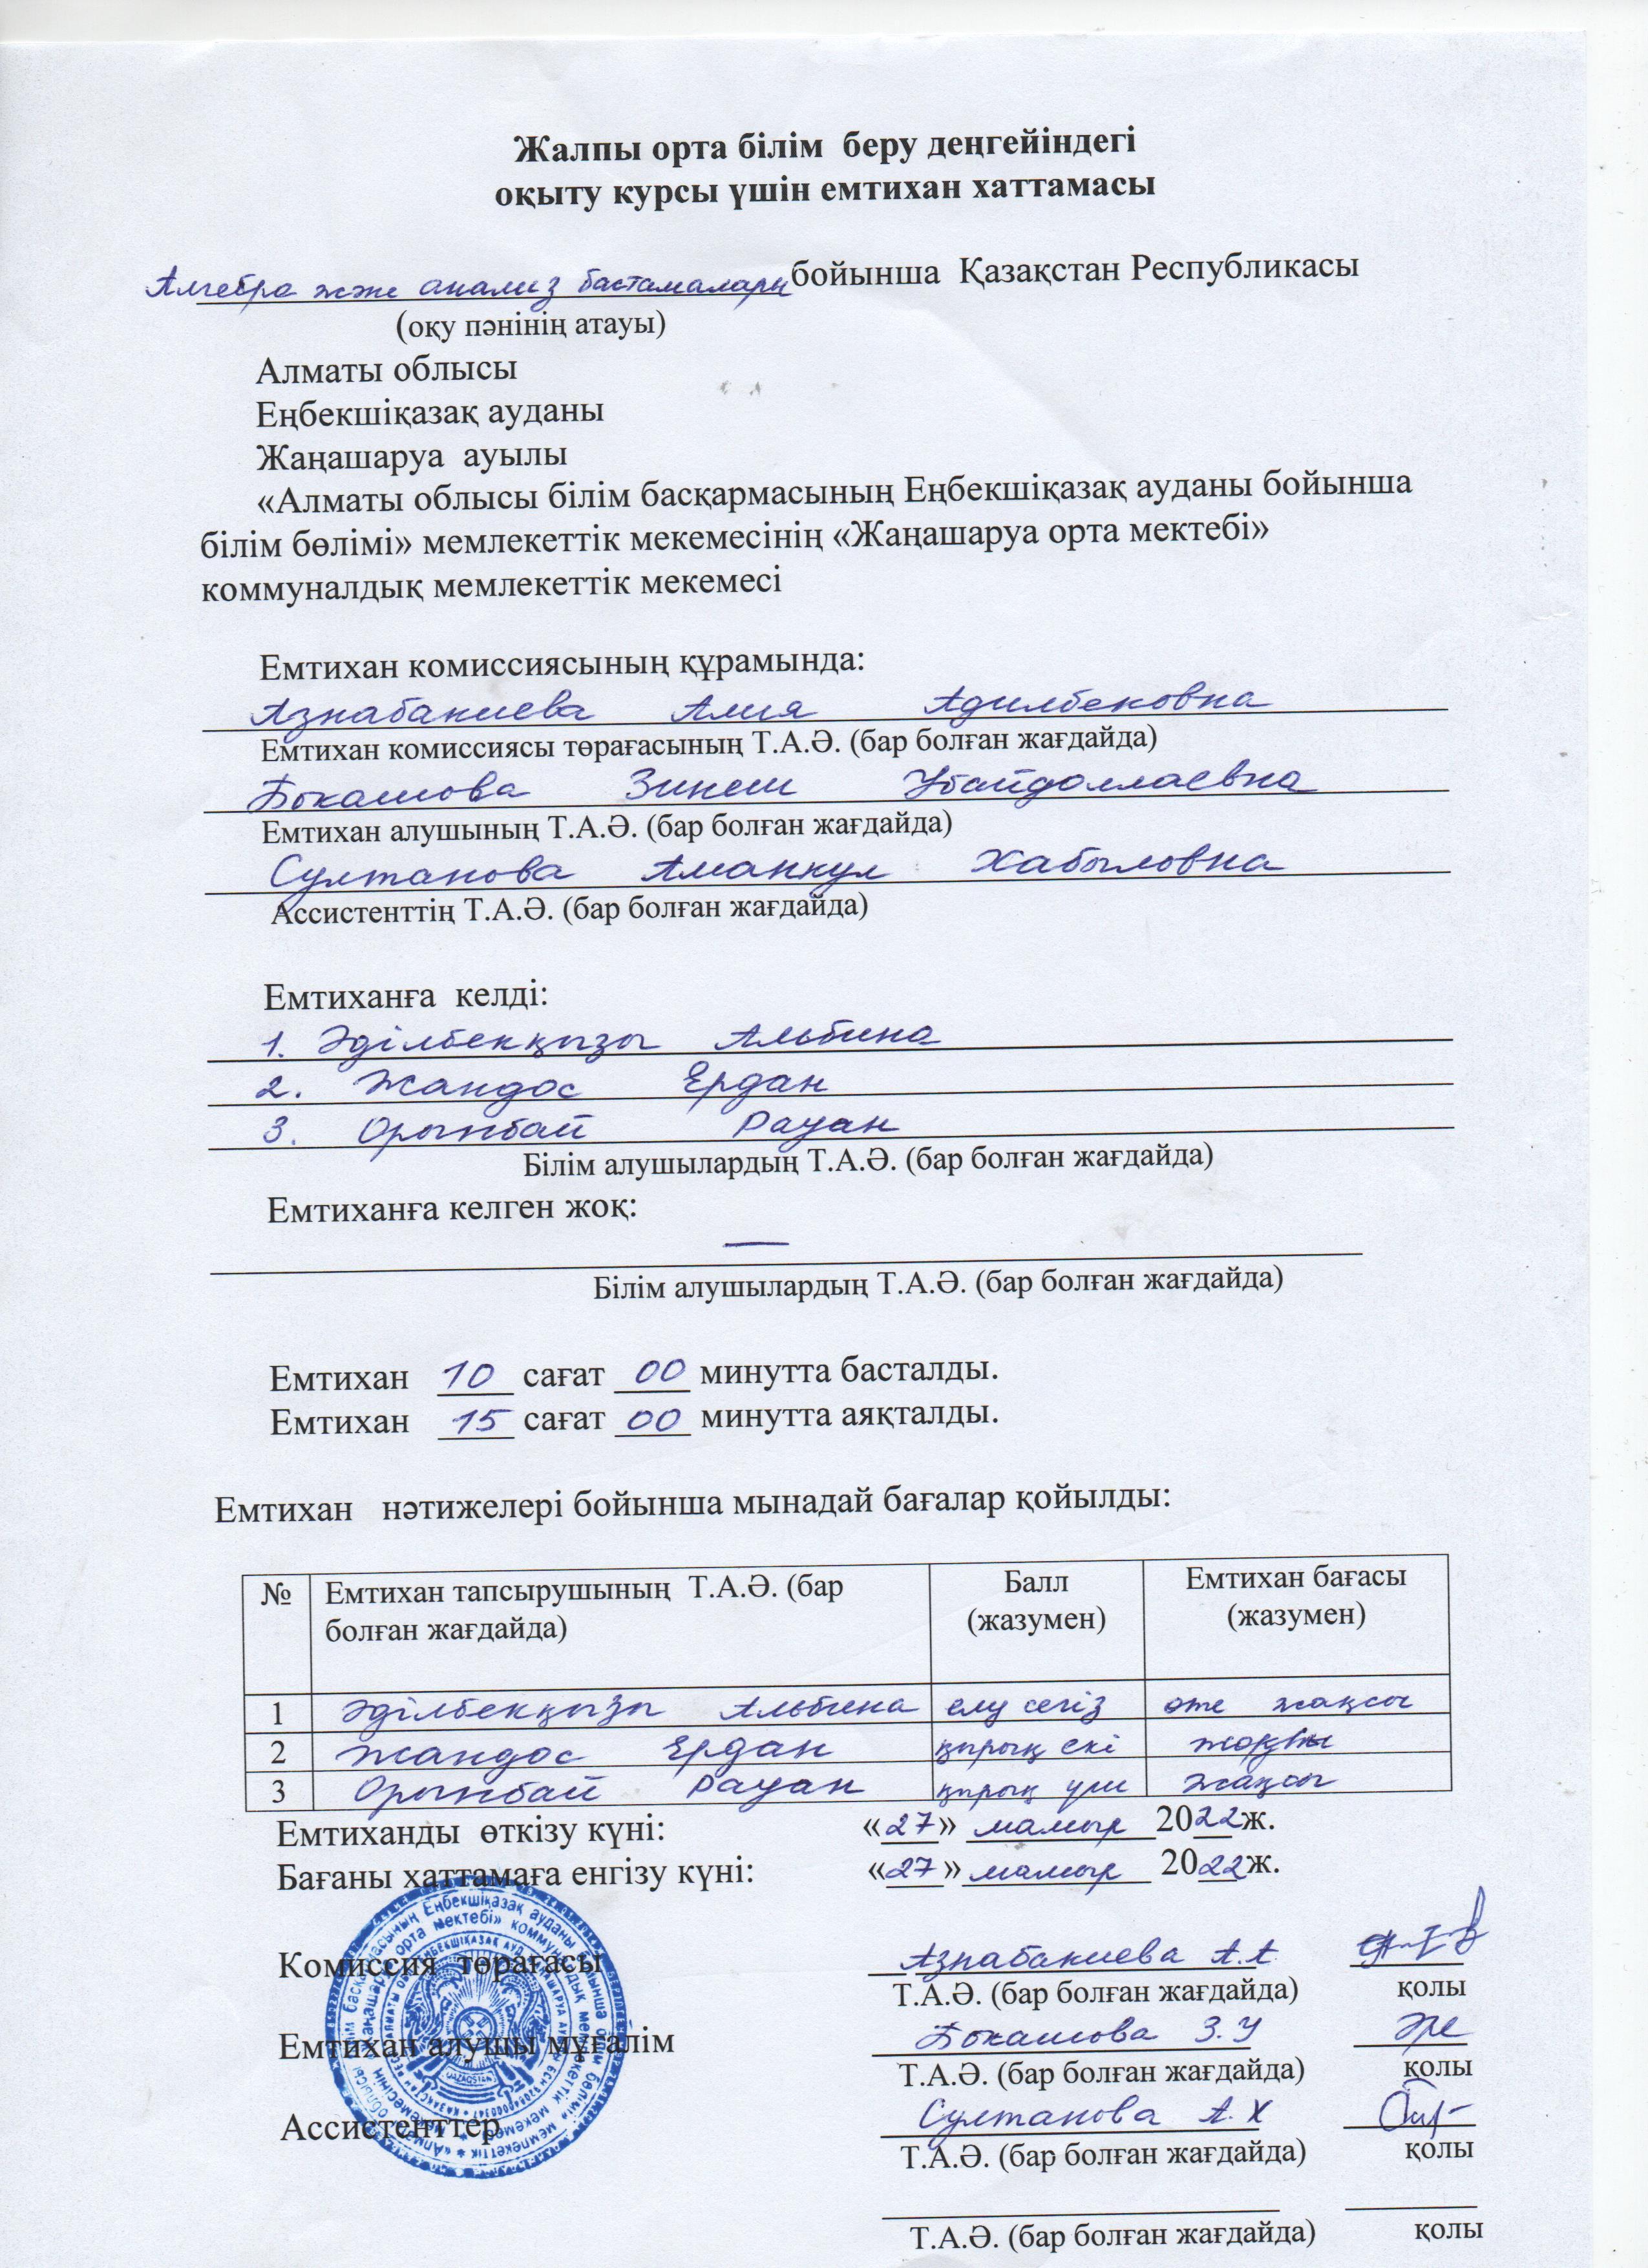 Жалпы орта білім беру деңгейіндегі
оқыту курсы үшін емтихан хаттамасы
Алгебра және анализ бастамалары бойынша Қазақстан Республикасы
(оқу пәнінің атауы)
Алматы облысы
Еңбекшіқазақ ауданы
Жаңашаруа ауылы
«Алматы облысы білім басқармасының Еңбекшіқазақ ауданы бойынша
білім бөлімі» мемлекеттік мекемесінің «Жаңашаруа орта мектебі»
коммуналдық мемлекеттік мекемесі
Емтихан комиссиясының құрамында:
Азнабакиева Алия Адилбековна
Емтихан комиссиясы төрағасының Т.А.Ә. (бар болған жағдайда)
Бокашова Зинеш Убайдоллаевна
Емтихан алушының Т.А.Ә. (бар болған жағдайда)
Султанова Аманкул Хабыловна
Ассистенттің Т.А.Ә. (бар болған жағдайда)
Емтиханға келді:
1. Әділбекқызы Альбина
2. Жандос Ердан
3. Орынбай Рауан
Білім алушылардың Т.А.Ә. (бар болған жағдайда)
Емтиханға келген жоқ:
—
Білім алушылардың Т.А.Ә. (бар болған жағдайда)
Емтихан 10 сағат 00 минутта басталды.
Емтихан 15 сағат 00 минутта аяқталды.
Емтихан нәтижелері бойынша мынадай бағалар қойылды:
№ Емтихан тапсырушының Т.А.Ә. (бар болған жағдайда) Балл (жазумен) Емтихан бағасы (жазумен)
1 Әділбекқызы Альбина елу сегіз өте жақсы
2 Жандос Ердан қырық екі
3 Орынбай Рауан қырық үш жақсы
Емтиханды өткізу күні: «27» мамыр 2022ж.
Бағаны хаттамаға енгізу күні: «27» мамыр 2022ж.
Комиссия төрағасы Азнабакиева А.А
Т.А.Ә. (бар болған жағдайда) қолы
Емтихан алушы мұғалім Бокашова З.У
Т.А.Ә. (бар болған жағдайда) қолы
Ассистенттер Султанова А.Х
Т.А.Ә. (бар болған жағдайда) қолы
Т.А.Ә. (бар болған жағдайда) қолы